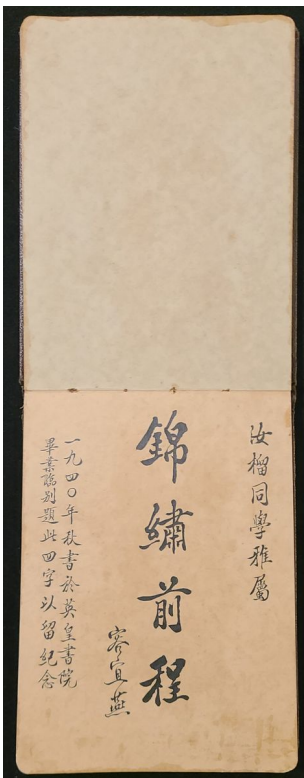 汝榴同學雅屬
錦繡前程
容宜燕
一九四〇年秋書於英皇書院
畢業臨別題此四字以留紀念